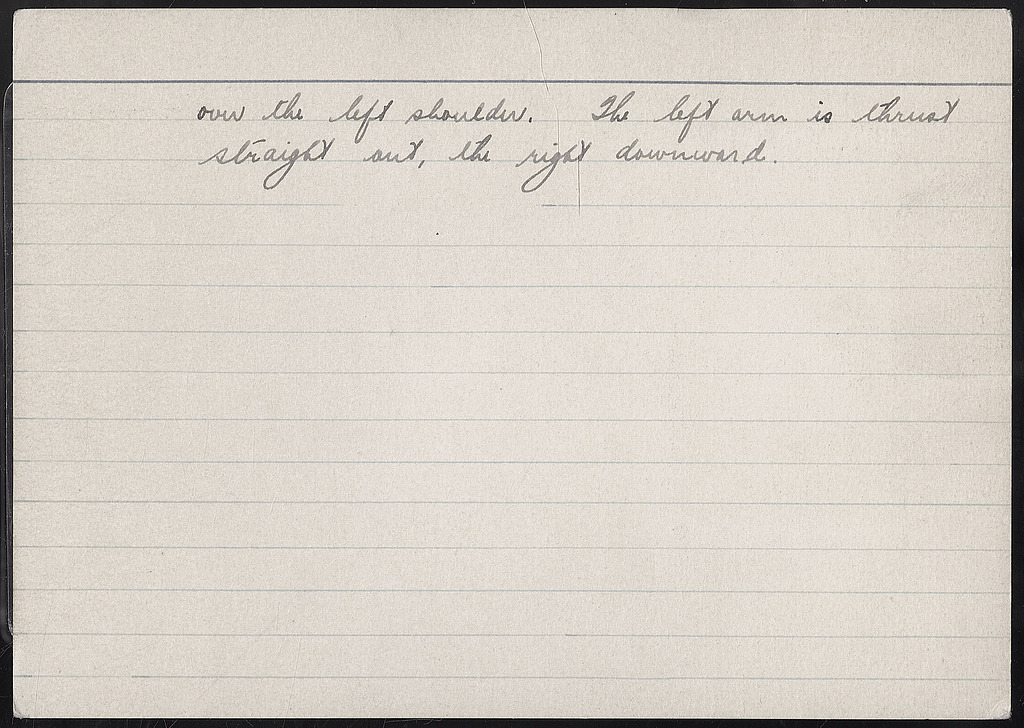 over the left shoulder. The left arm is thrust
straight out, the right downward.